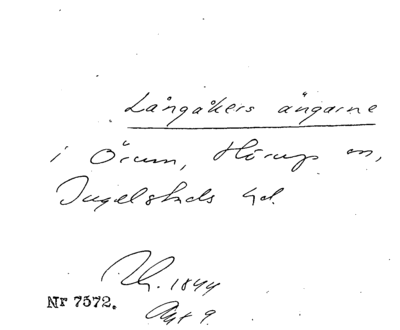 Långåkers ängarne
i Örum, Hörups sn,
Ingelstads hd.
Th. 1844
Nr 7572.
Akt 9.